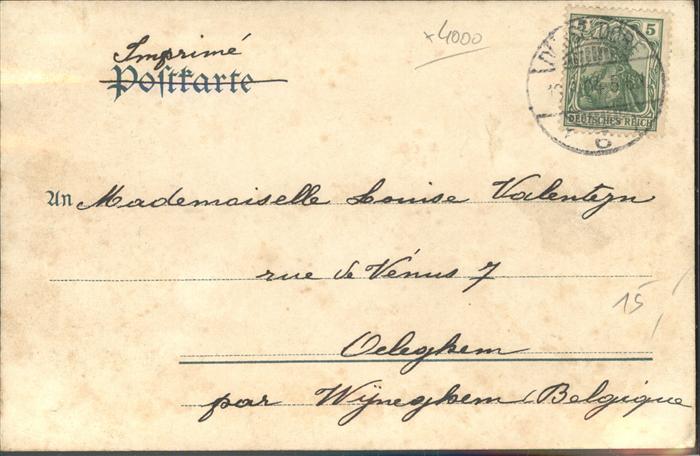 Imprimé
Postkarte
x4000
5
DEUTSCHES REICH
An Mademoiselle Louise Valentyn
rue de Vénus 7
15
Oeleghem
par Wyneghem (Belgique